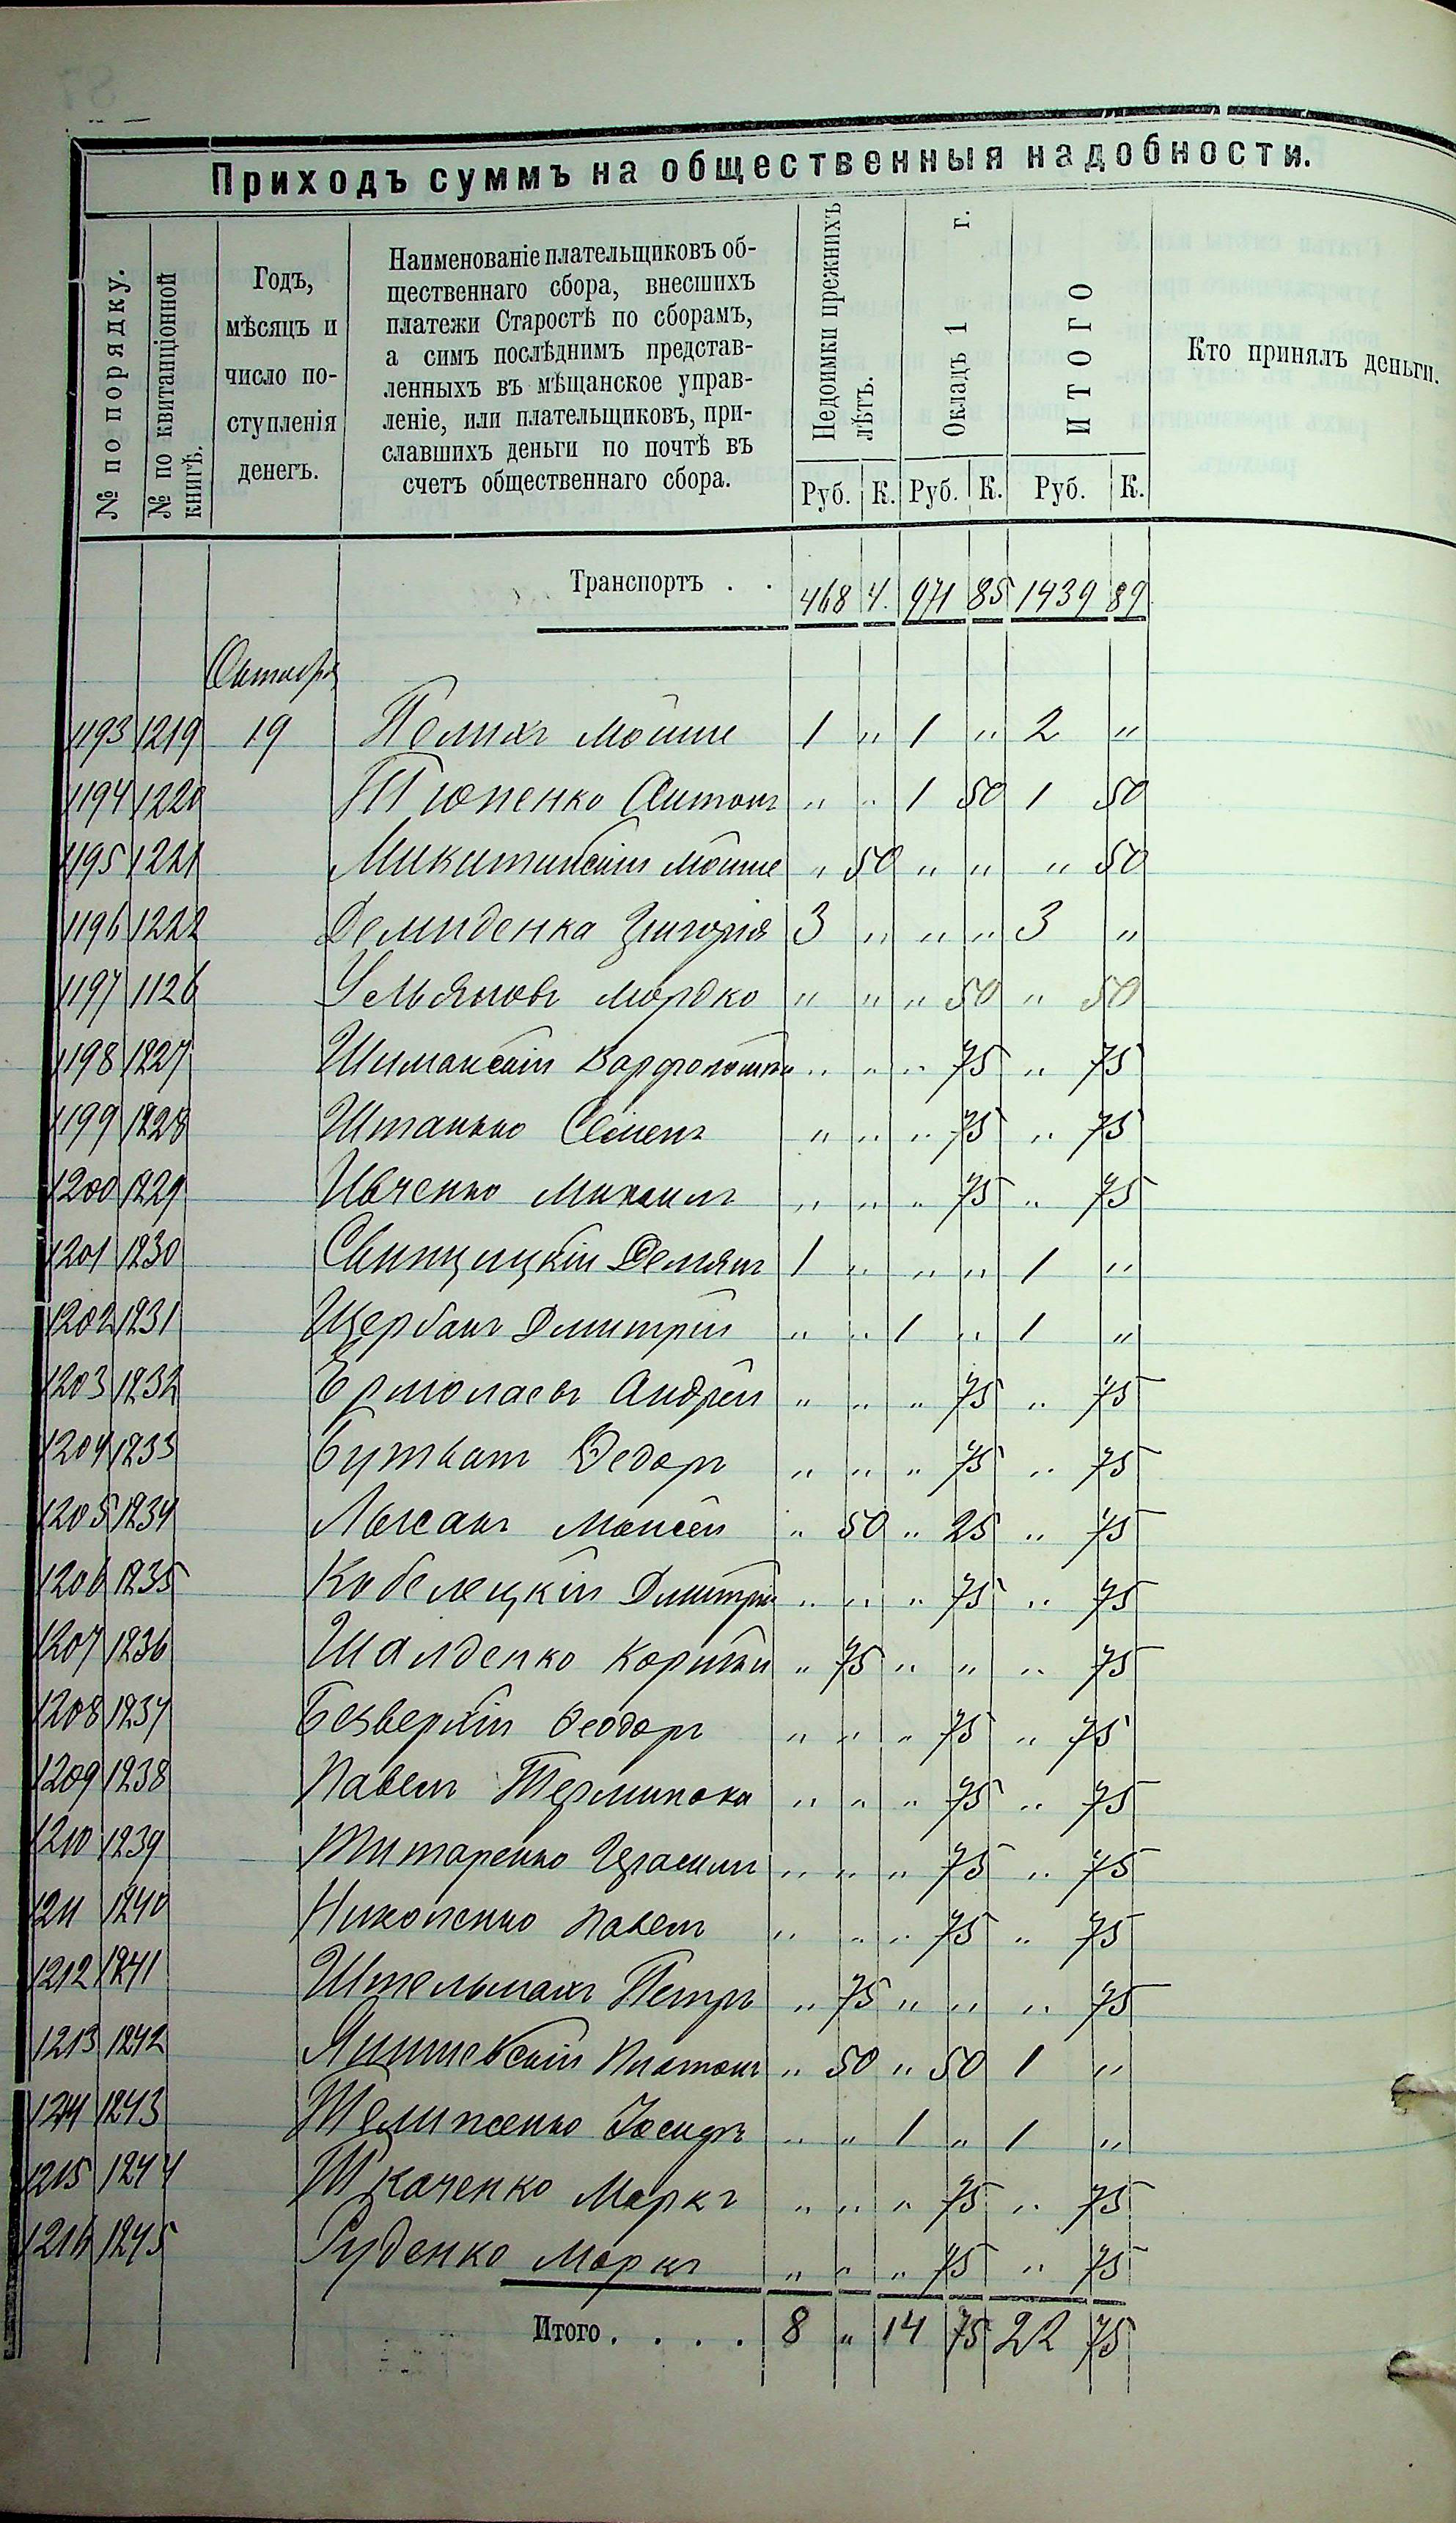 Приходъ суммъ на общественныя надобности.
№ по порядку.
№ по квитанціонной книгѣ.
Годъ,
мѣсяцъ и
число по-
ступленія
денегъ.
Наименованіе плательщиковъ об-
щественнаго сбора, внесшихъ
платежи Старостѣ по сборамъ,
а симъ послѣднимъ представ-
ленныхъ въ мѣщанское управ-
леніе, или плательщиковъ, при-
славшихъ деньги по почтѣ въ
счетъ общественнаго сбора.
Недоимки прежнихъ лѣтъ.
Окладъ 1 г.
ИТОГО
Кто принялъ деньги.
Руб. К. Руб. К. Руб. К.
Транспортъ . . 468 4. 971 85 1439 89
Октября
1193 1219 19 Мошше 1 " 1 " 2 "
1194 1220 Тюпенко Антонъ " " 1 50 1 50
1195 1221 Мошше " 50 " " " 50
1196 1222 Демиденка Григорія 3 " " " 3 "
1197 1126 Ульяновъ Мордко " " " 50 " 50
1198 1227 Шиманскій " " " 75 " 75
1199 1228 Штанько Семенъ " " " 75 " 75
1200 1229 Ивченко Михаилъ " " " 75 " 75
1201 1230 Свинцицкій Демянъ 1 " " " 1 "
1202 1231 Щербанъ Дмитрій " " 1 " 1 "
1203 1232 Ермолаевъ Андрей " " " 75 " 75
1204 1233 Федоръ " " " 75 " 75
1205 1234 Лысакъ Моисей " 50 " 25 " 75
1206 1235 Кобелецкій Дмитрій " " " 75 " 75
1207 1236 Шалденко Корнѣй " 75 " " " 75
1208 1237 Безверхій Феодоръ " " " 75 " 75
1209 1238 Павелъ " " " 75 " 75
1210 1239 Титаренко Герасимъ " " " 75 " 75
1211 1240 Николенко Павелъ " " " 75 " 75
1212 1241 Штельмахъ Петръ " 75 " " " 75
1213 1242 Платонъ " 50 " 50 1 "
1214 1243 Телиженко Іосифъ " " 1 " 1 "
1215 1244 Ткаченко Маркъ " " " 75 " 75
1216 1245 Руденко Маркъ " " " 75 " 75
Итого. . . . 8 " 14 75 22 75